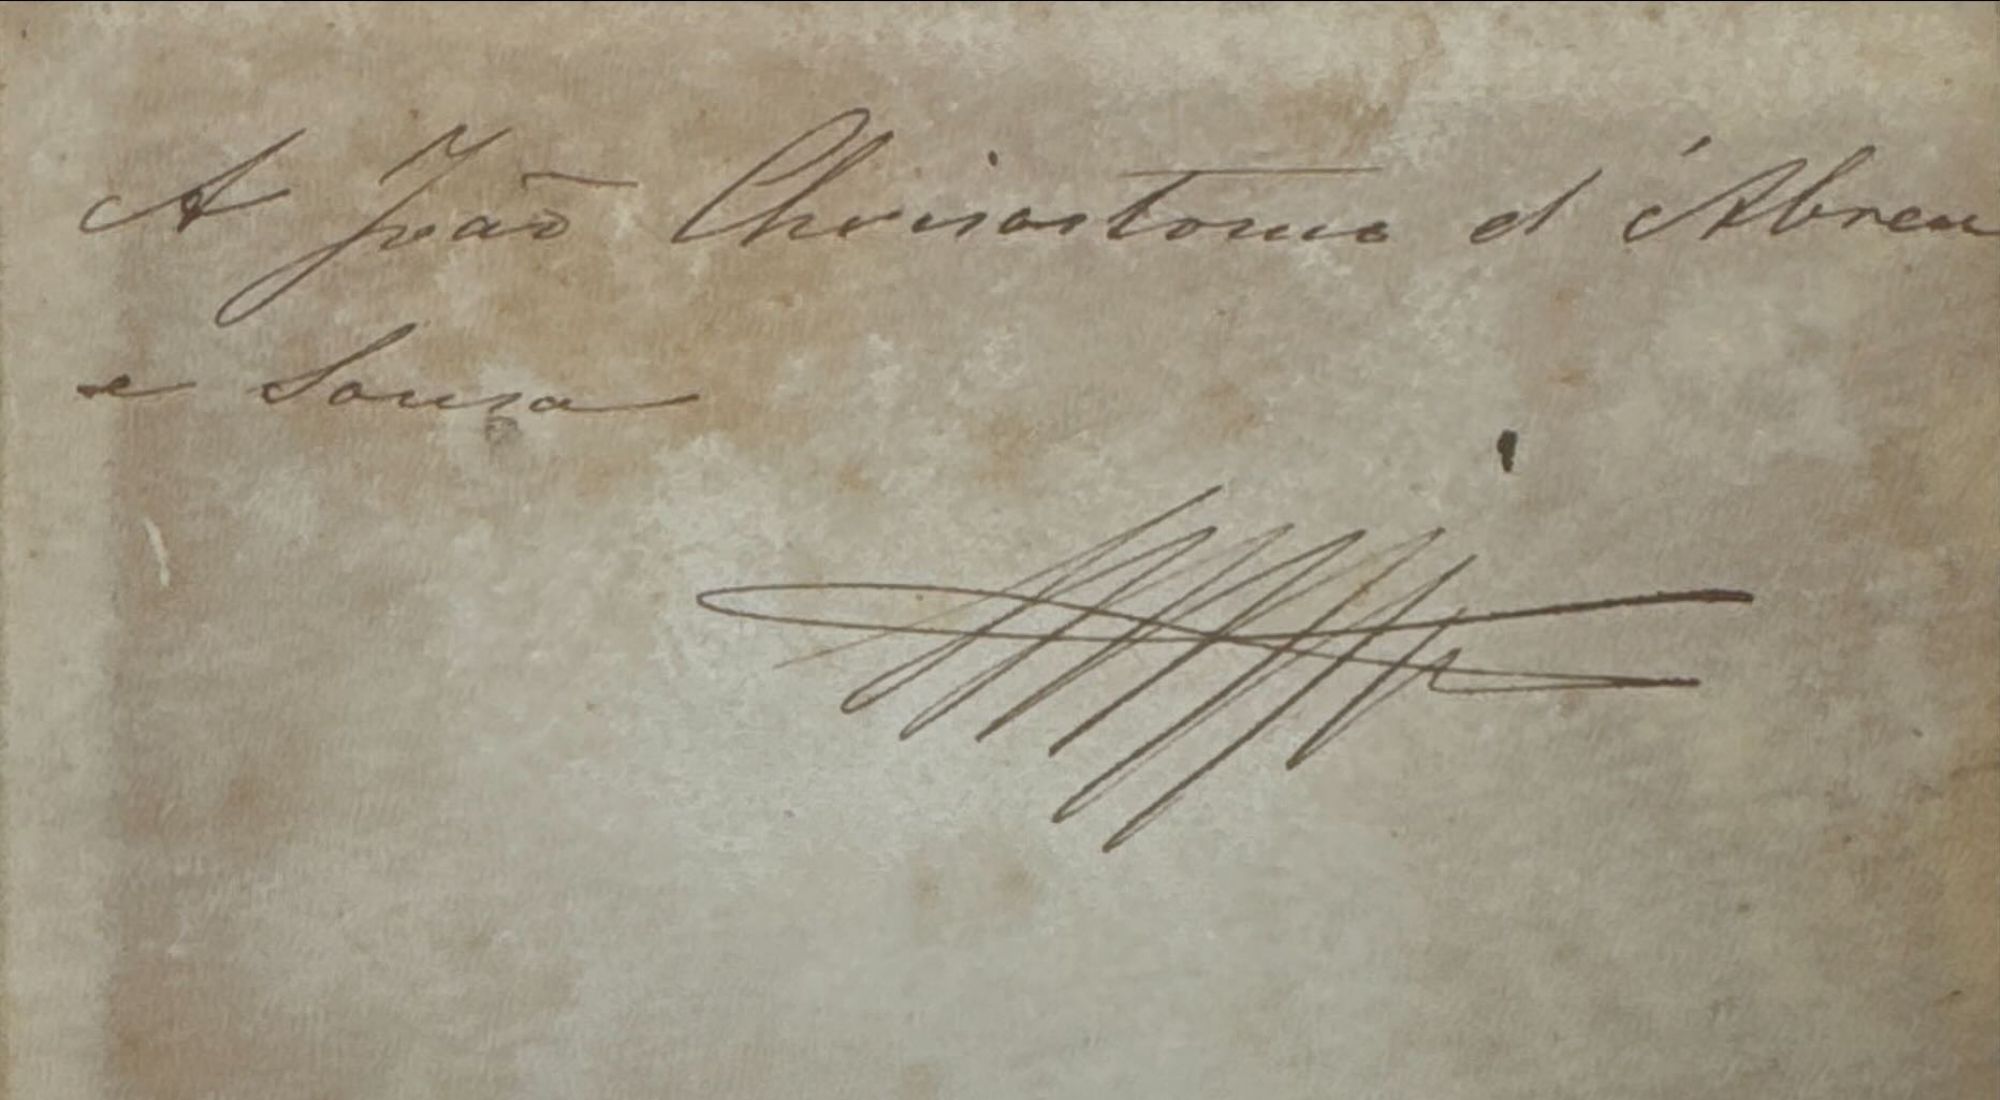 A João Chrisostomo d'Abreu
e Sousa